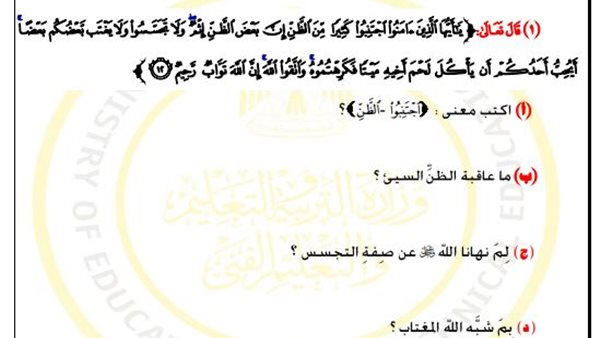 (١) قَالَ تَعَالَى: ﴿يَٰٓأَيُّهَا ٱلَّذِينَ ءَامَنُوا۟ ٱجْتَنِبُوا۟ كَثِيرًا مِّنَ ٱلظَّنِّ إِنَّ بَعْضَ ٱلظَّنِّ إِثْمٌ ۖ وَلَا تَجَسَّسُوا۟ وَلَا يَغْتَب بَّعْضُكُم بَعْضًا ۚ
أَيُحِبُّ أَحَدُكُمْ أَن يَأْكُلَ لَحْمَ أَخِيهِ مَيْتًا فَكَرِهْتُمُوهُ ۚ وَٱتَّقُوا۟ ٱللَّهَ ۚ إِنَّ ٱللَّهَ تَوَّابٌ رَّحِيمٌ ﴿١٢﴾﴾
(أ) اكتب معنى : ﴿اجْتَنِبُوا - الظَّنِّ﴾؟
(ب) ما عاقبة الظنِّ السيئ؟
(ج) لِمَ نهانا الله ﷻ عن صفة التجسس؟
(د) بِمَ شبَّه الله المغتاب؟
وزارة التربية والتعليم
والتعليم الفني
MINISTRY OF EDUCATION